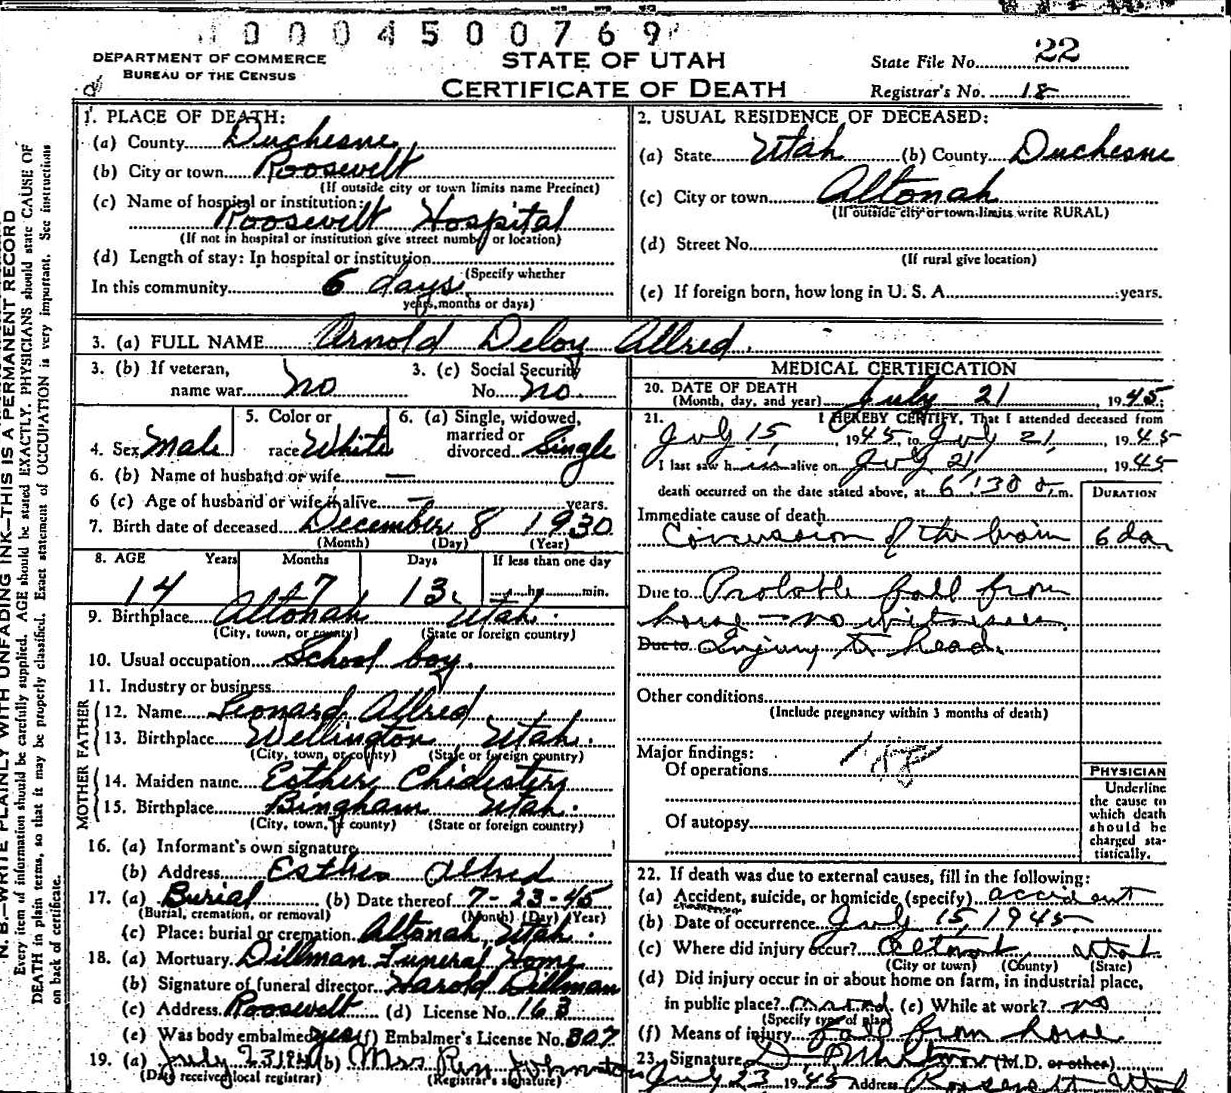 0004500769
DEPARTMENT OF COMMERCE
BUREAU OF THE CENSUS
STATE OF UTAH
CERTIFICATE OF DEATH
State File No. 22
Registrar's No. 18
N. B.—WRITE PLAINLY WITH UNFADING INK—THIS IS A PERMANENT RECORD
Every item of information should be carefully supplied. AGE should be stated EXACTLY. PHYSICIANS should state CAUSE OF
DEATH in plain terms, so that it may be properly classified. Exact statement of OCCUPATION is very important. See instructions
on back of certificate.
1. PLACE OF DEATH:
(a) County Duchesne
(b) City or town Roosevelt
(If outside city or town limits name Precinct)
(c) Name of hospital or institution:
Roosevelt Hospital
(If not in hospital or institution give street number or location)
(d) Length of stay: In hospital or institution
(Specify whether
In this community 6 days
years, months or days)
2. USUAL RESIDENCE OF DECEASED:
(a) State Utah (b) County Duchesne
(c) City or town Altonah
(If outside city or town limits write RURAL)
(d) Street No.
(If rural give location)
(e) If foreign born, how long in U. S. A. years.
3. (a) FULL NAME Arnold Deloy Allred
3. (b) If veteran, name war no
3. (c) Social Security No. no
4. Sex Male
5. Color or race White
6. (a) Single, widowed, married or divorced Single
6. (b) Name of husband or wife —
6 (c) Age of husband or wife if alive — years.
7. Birth date of deceased December 8 1930
(Month) (Day) (Year)
8. AGE Years Months Days If less than one day
14 7 13 hr. min.
9. Birthplace Altonah Utah
(City, town, or county) (State or foreign country)
10. Usual occupation School boy
11. Industry or business
FATHER
12. Name Leonard Allred
13. Birthplace Wellington Utah
(City, town, or county) (State or foreign country)
MOTHER
14. Maiden name Esther Chidester
15. Birthplace Bingham Utah
(City, town, or county) (State or foreign country)
16. (a) Informant's own signature
(b) Address Esther Allred
17. (a) Burial (b) Date thereof 7-23-45
(Burial, cremation, or removal) (Month) (Day) (Year)
(c) Place: burial or cremation Altonah, Utah
18. (a) Mortuary Dillman Funeral Home
(b) Signature of funeral director Harold Dillman
(c) Address Roosevelt (d) License No. 163
(e) Was body embalmed yes (f) Embalmer's License No. 307
19. (a) July 23 1945 (b) Mrs Johnston
(Date received local registrar) (Registrar's signature)
MEDICAL CERTIFICATION
20. DATE OF DEATH
(Month, day, and year) July 21 1945
21. I HEREBY CERTIFY, That I attended deceased from
July 15, 1945, to July 21, 1945
I last saw him alive on July 21 1945
death occurred on the date stated above, at 6:30 a.m.
DURATION
Immediate cause of death
Concussion of the brain 6 da
Due to Probable fall from
horse — no witnesses.
Due to Injury to head.
Other conditions
(Include pregnancy within 3 months of death)
Major findings: 188
Of operations
Of autopsy
PHYSICIAN
Underline
the cause to
which death
should be
charged sta-
tistically.
22. If death was due to external causes, fill in the following:
(a) Accident, suicide, or homicide (specify) accident
(b) Date of occurrence July 15, 1945
(c) Where did injury occur? Altonah Utah
(City or town) (County) (State)
(d) Did injury occur in or about home on farm, in industrial place,
in public place? (e) While at work? no
(Specify type of place)
(f) Means of injury Fall from horse
23. Signature (M.D. or other)
July 23 1945 Address Roosevelt Utah